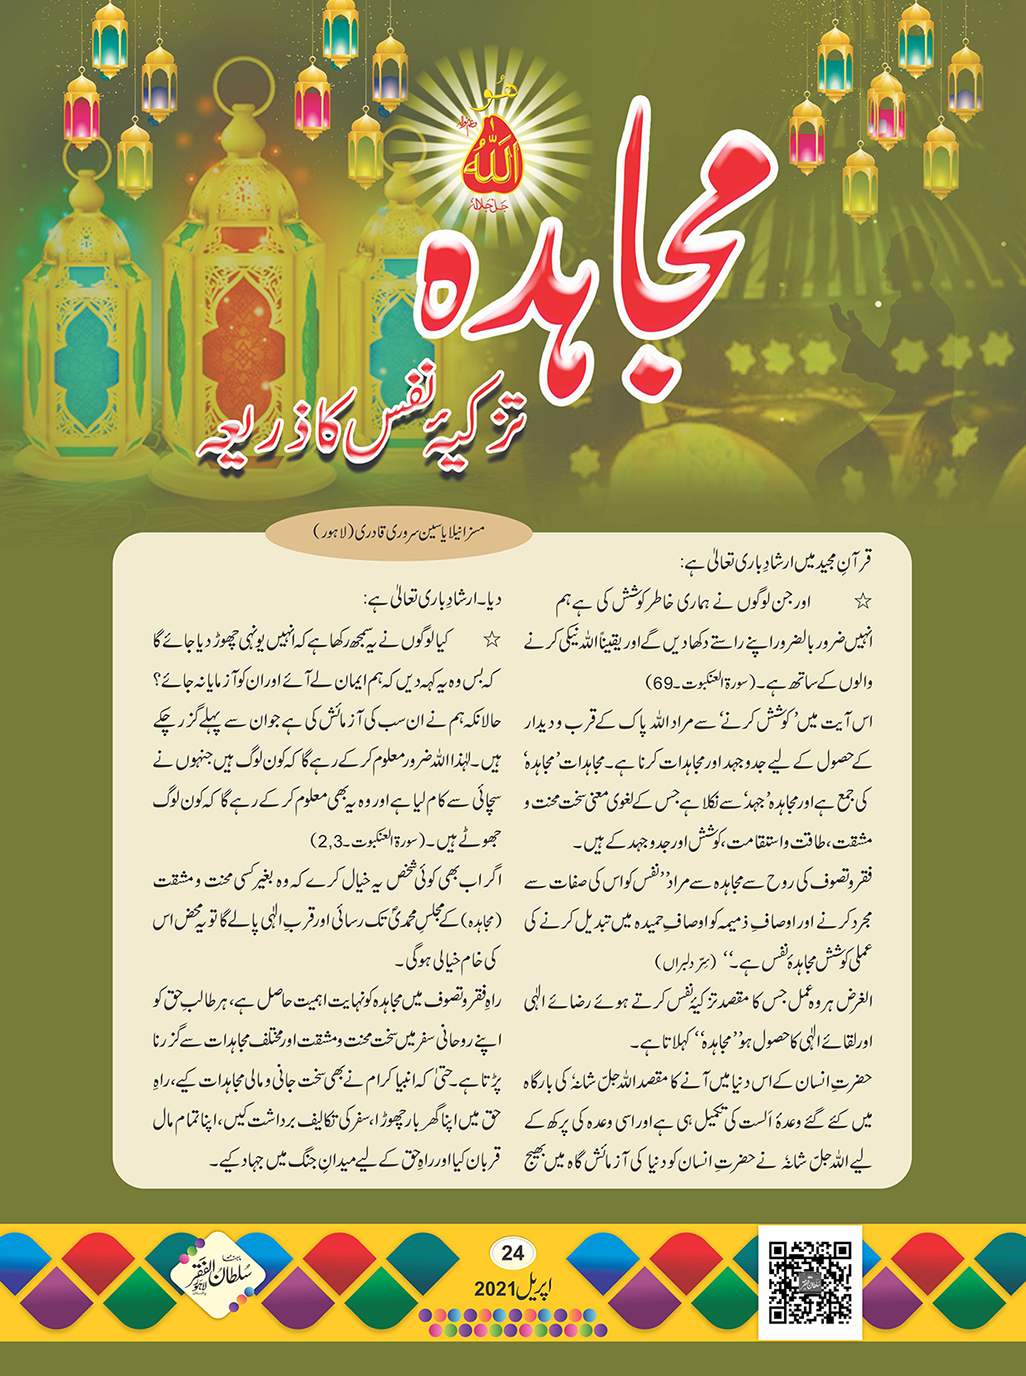 ھُو
اللہ
جل جلالہٗ
مجاہدہ
تزکیۂ نفس کا ذریعہ
مسز انیلا یاسین سروری قادری (لاہور)
قرآنِ مجید میں ارشادِ باری تعالیٰ ہے:
☆ اور جن لوگوں نے ہماری خاطر کوشش کی ہے ہم
انہیں ضرور بالضرور اپنے راستے دکھا دیں گے اور یقیناً اللہ نیکی کرنے
والوں کے ساتھ ہے۔ (سورۃ العنکبوت۔69)
اس آیت میں ’کوشش کرنے‘ سے مراد اللہ پاک کے قرب و دیدار
کے حصول کے لیے جدوجہد اور مجاہدات کرنا ہے۔ مجاہدات ’مجاہدہ‘
کی جمع ہے اور مجاہدہ ’جہد‘ سے نکلا ہے جس کے لغوی معنی سخت محنت و
مشقت، طاقت و استقامت، کوشش اور جدوجہد کے ہیں۔
فقر و تصوف کی روح سے مجاہدہ سے مراد ’’نفس کو اس کی صفات سے
مجرد کرنے اور اوصافِ ذمیمہ کو اوصافِ حمیدہ میں تبدیل کرنے کی
عملی کوشش مجاہدۂ نفس ہے۔‘‘ (سِرّ دلبراں)
الغرض ہر وہ عمل جس کا مقصد تزکیۂ نفس کرتے ہوئے رضائے الٰہی
اور لقائے الٰہی کا حصول ہو ’’مجاہدہ‘‘ کہلاتا ہے۔
حضرتِ انسان کے اس دنیا میں آنے کا مقصد اللہ جلّ شانہٗ کی بارگاہ
میں کئے گئے وعدۂ اَلست کی تکمیل ہی ہے اور اسی وعدہ کی پرکھ کے
لیے اللہ جلّ شانہٗ نے حضرتِ انسان کو دنیا کی آزمائش گاہ میں بھیج
دیا۔ ارشادِ باری تعالیٰ ہے:
☆ کیا لوگوں نے یہ سمجھ رکھا ہے کہ انہیں یونہی چھوڑ دیا جائے گا
کہ بس وہ یہ کہہ دیں کہ ہم ایمان لے آئے اور ان کو آزمایا نہ جائے؟
حالانکہ ہم نے ان سب کی آزمائش کی ہے جو ان سے پہلے گزر چکے
ہیں۔ لہٰذا اللہ ضرور معلوم کر کے رہے گا کہ کون لوگ ہیں جنہوں نے
سچائی سے کام لیا ہے اور وہ یہ بھی معلوم کر کے رہے گا کہ کون لوگ
جھوٹے ہیں۔ (سورۃ العنکبوت۔2,3)
اگر اب بھی کوئی شخص یہ خیال کرے کہ وہ بغیر کسی محنت و مشقت
(مجاہدہ) کے مجلسِ محمدیؐ تک رسائی اور قربِ الٰہی پالے گا تو یہ محض اس
کی خام خیالی ہوگی۔
راہِ فقر و تصوف میں مجاہدہ کو نہایت اہمیت حاصل ہے، ہر طالبِ حق کو
اپنے روحانی سفر میں سخت محنت و مشقت اور مختلف مجاہدات سے گزرنا
پڑتا ہے۔ حتیٰ کہ انبیا کرام نے بھی سخت جانی و مالی مجاہدات کیے، راہِ
حق میں اپنا گھر بار چھوڑا، سفر کی تکالیف برداشت کیں، اپنا تمام مال
قربان کیا اور راہِ حق کے لیے میدانِ جنگ میں جہاد کیے۔
ماہنامہ
سُلطان الفَقر
لاہور
24
اپریل 2021